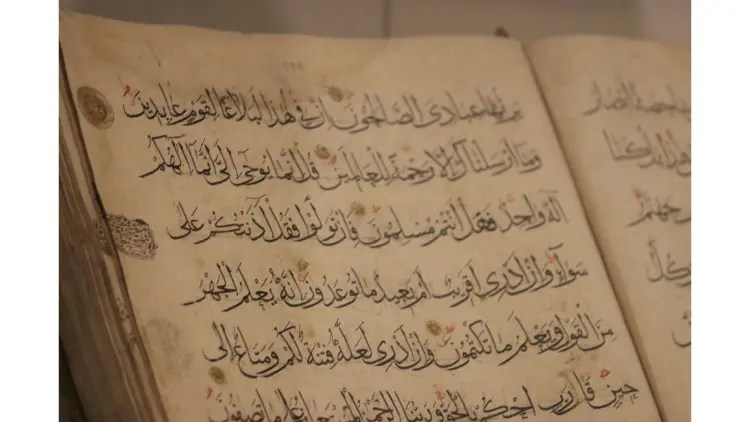 أبصار
كنا
جهنم
وكل
يرثها عبادي الصالحون إن في هذا لبلاغا لقوم عابدين
وما أرسلناك إلا رحمة للعالمين قل إنما يوحى إلي أنما إلهكم
إله واحد فهل أنتم مسلمون فإن تولوا فقل آذنتكم على
سواء وإن أدري أقريب أم بعيد ما توعدون إنه يعلم الجهر
من القول ويعلم ما تكتمون وإن أدري لعله فتنة لكم ومتاع إلى
حين قال رب احكم بالحق وربنا الرحمن المستعان على ما تصفون